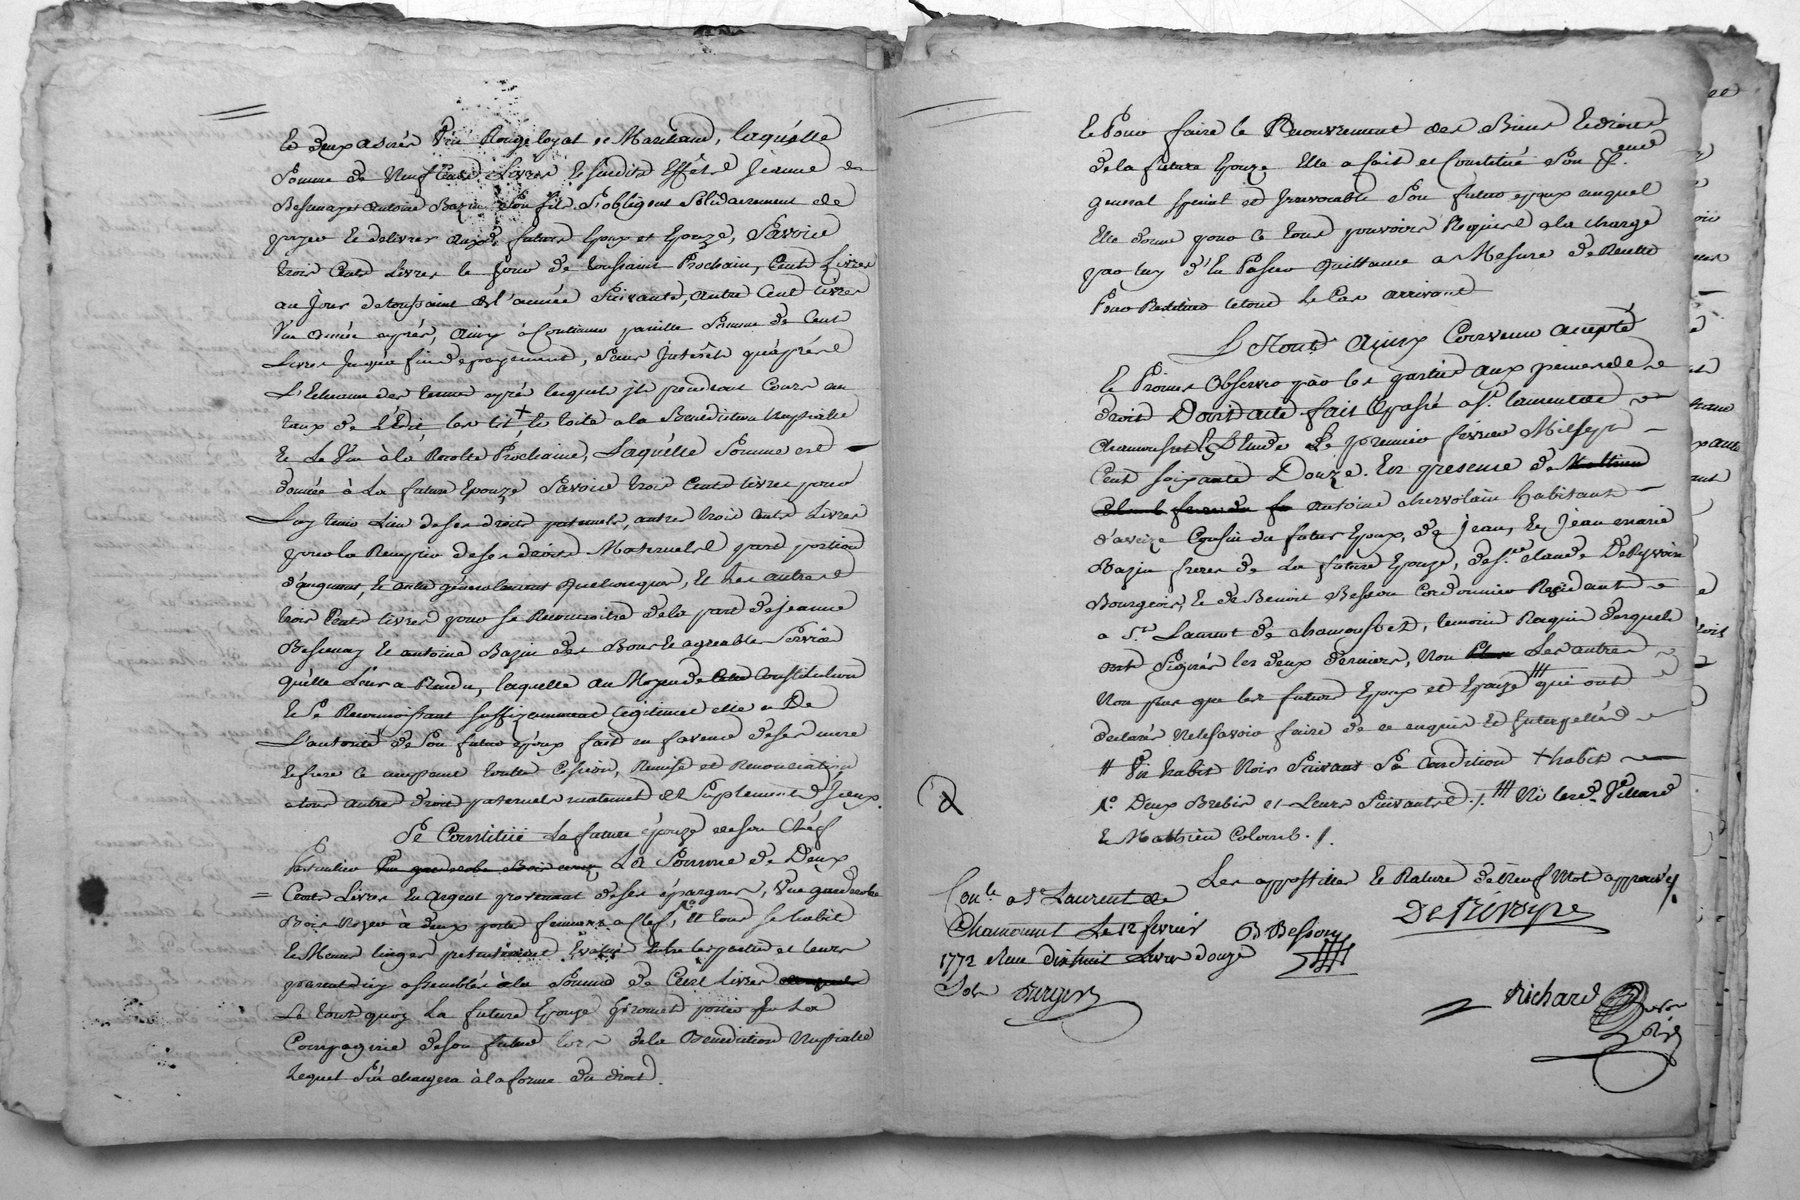 et deux asnés Vin Rouge loyal et Marchand, laquélle
Somme de Neuf Cent Livres et susdits Effets Jeanne
Bessenay et antoine Bazin Son fils S'obligent Solidairement de
payer et delivrer auxds. futurs Epoux et Epouze, Savoir
trois Cents Livres le jour de toussaint Prochain, Cent Livres
au jour de toussaint de l'année Suivante, autre Cent Livres
Un année aprés, ainsy à Continuer pareille Somme de Cent
Livres jusqua fin de payement, Sans Intérêts qu'aprés
L'Echeance des termes apré lesquels ils prendront Cours au
taux de L'Edit les lit + et toile a la Benediction Nuptialle
et Le Vin à la Récolte Prochaine, Laquélle Somme est
donnée à La future Epouze Savoir trois Cents livres pour
Luy tenir Lieu de ses droits paternels, autres trois Cents Livres
pour la Remplir de ses droits Maternels part portion
d'augment, et autre généralement Quelconques, Et les autres
trois Cents livres pour se Reconnoitre de la part de jeanne
Bessenay et antoine Bazin des Bons et agreables Services
qu'elle Leur a Rendu, laquelle au Moyen de Cette Constitution
et Se Reconnoissant suffizamment légitimée elle a De
L'autorité de Son futur époux fait en faveur de ses mere
et frere ce acceptant toutte Cession, Remise et Renonciation
a tous autre droit paternels maternel et Suplement d'Iceux.
Se Constitüe La future épouze de son Chéf
Particulier Une garderobe Bois noyer La Somme de Deux
= Cents Livres En Argent provenant de ses épargnes, Une garderobe
Bois Noyer à deux porte fermant a Clef, 1° Et tous se habit
et Menus linges Evalué Entre les parties et leurs
parents assemblés à la Somme de Cent Livres
Le tout quoy La future Epouze promet porter En La
Compagnie de son futur lors de la Benediction Nuptialle
Lequel S'en chargera à la forme du droit.
et Pour faire le Recouvrement des Biens et droits
de la future Epouze Elle a fait et Constitué Son Pr. eur
general special et Irrevocable Son futur epoux auquel
Elle donne pour ce tous pouvoirs Requis a la charge
par luy d'En Passer Quittance a Mesure de Recette
Pour Restituer le tout le Cas arrivant
L'Nont Ainsy Convenu accepté
et Promis Observer par les parties aux peines de
droit Dont acte fait et passé a St. laurent de
Chamousset Etude Le premier fevrier Mil sept
Cent soixante Douze. En presence de Mathieu
Colomb antoine chervolain habitant
d'aveize Cousin du futur Epoux, de jean, et jean marie
Bazin freres de La future Epouze, de Sr. claude DePrevoire
Bourgeois, et de Benoit Besson Cordonnier Residants
a St. Laurent de chamousset, temoins Requis desquels
ont Signés les deux derniers, Non Plus Les autres
Non plus que les futurs Epoux et Epouze /// qui ont
declarés Ne le Savoir faire de ce enquis et Interpellés
// Un habit Noir Suivant Sa Condition + habit
1° Deux Brebis et Leurs Suivants ./. /// Ni led. Villard
et Mathieu Colomb ./.
Les appostilles et Rature de Neuf Mot approuvés
Conlé a St Laurent de
Chamousset Le 12 fevrier
1772 Reçu dixhuit Livres douze
Sols
B Besson
Richard